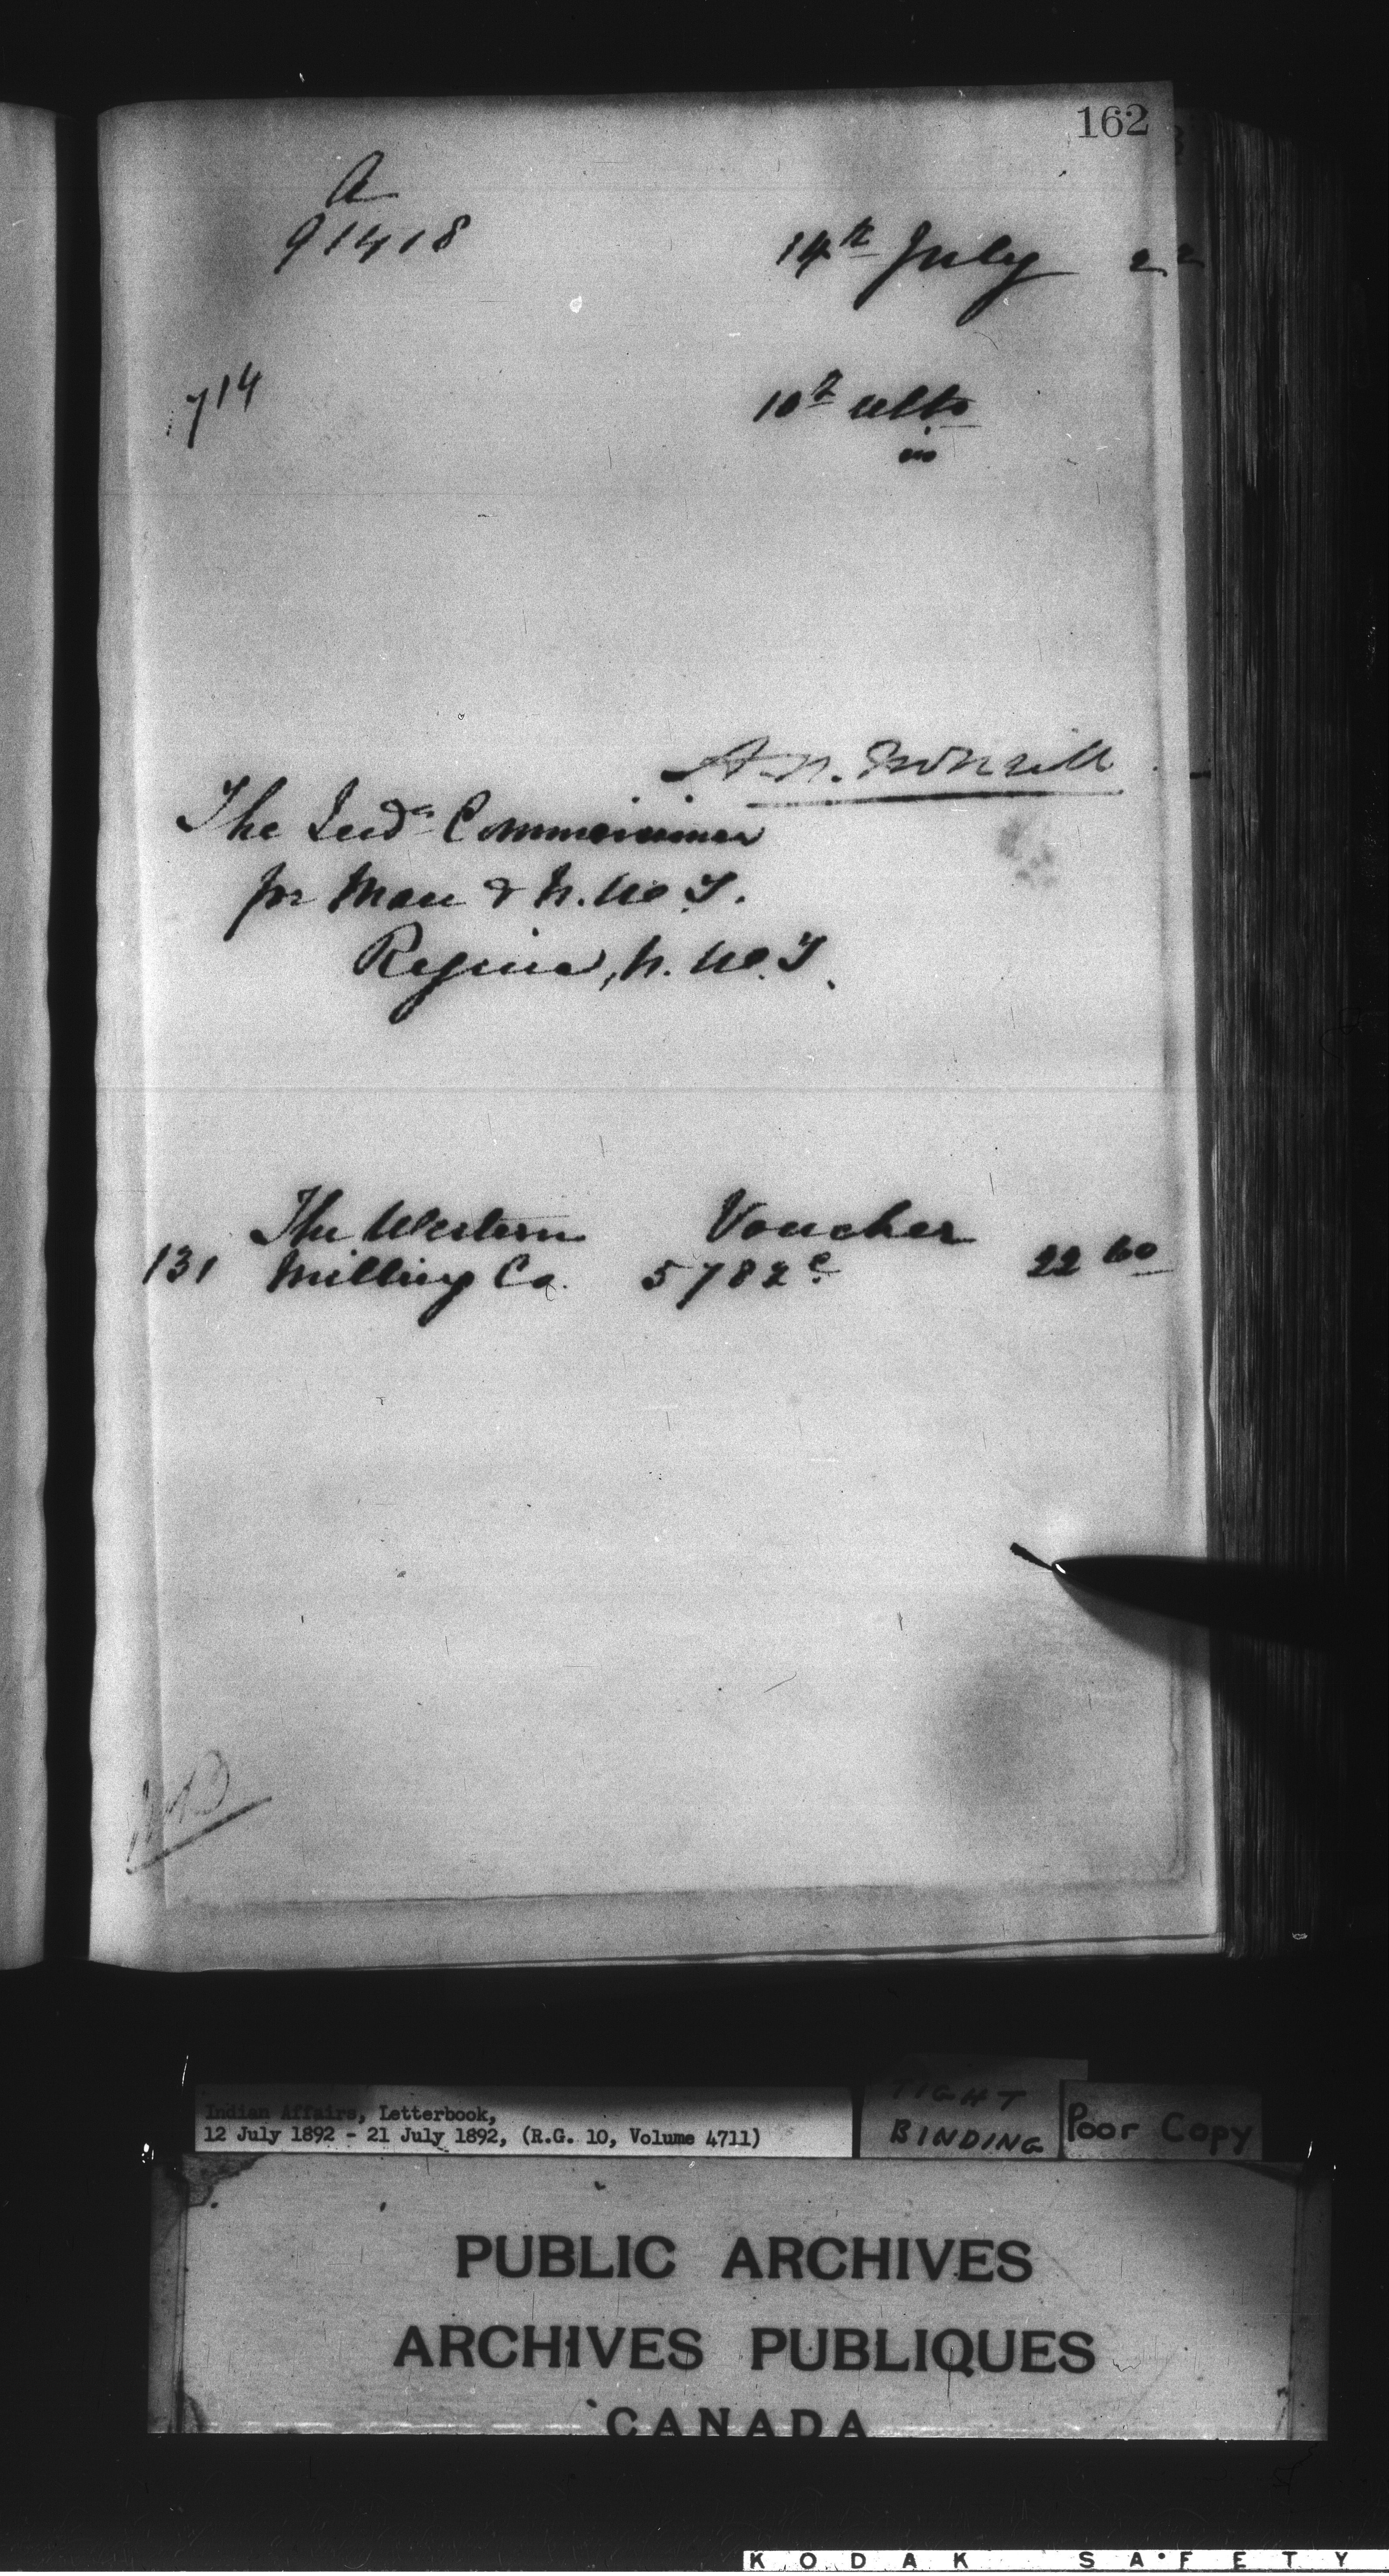 162
A
91418
14th July 22
714
10th ulto
in
A. N. McNeill
The Indn Commissioner
for Man & N.W.T.
Regina, N.W.T.
The Western Voucher
131 Milling Co. 5782 c 22 60
Indian Affairs, Letterbook,
12 July 1892 - 21 July 1892, (R.G. 10, Volume 4711)
TIGHT
BINDING
Poor Copy
PUBLIC ARCHIVES
ARCHIVES PUBLIQUES
CANADA
KODAK SAFETY